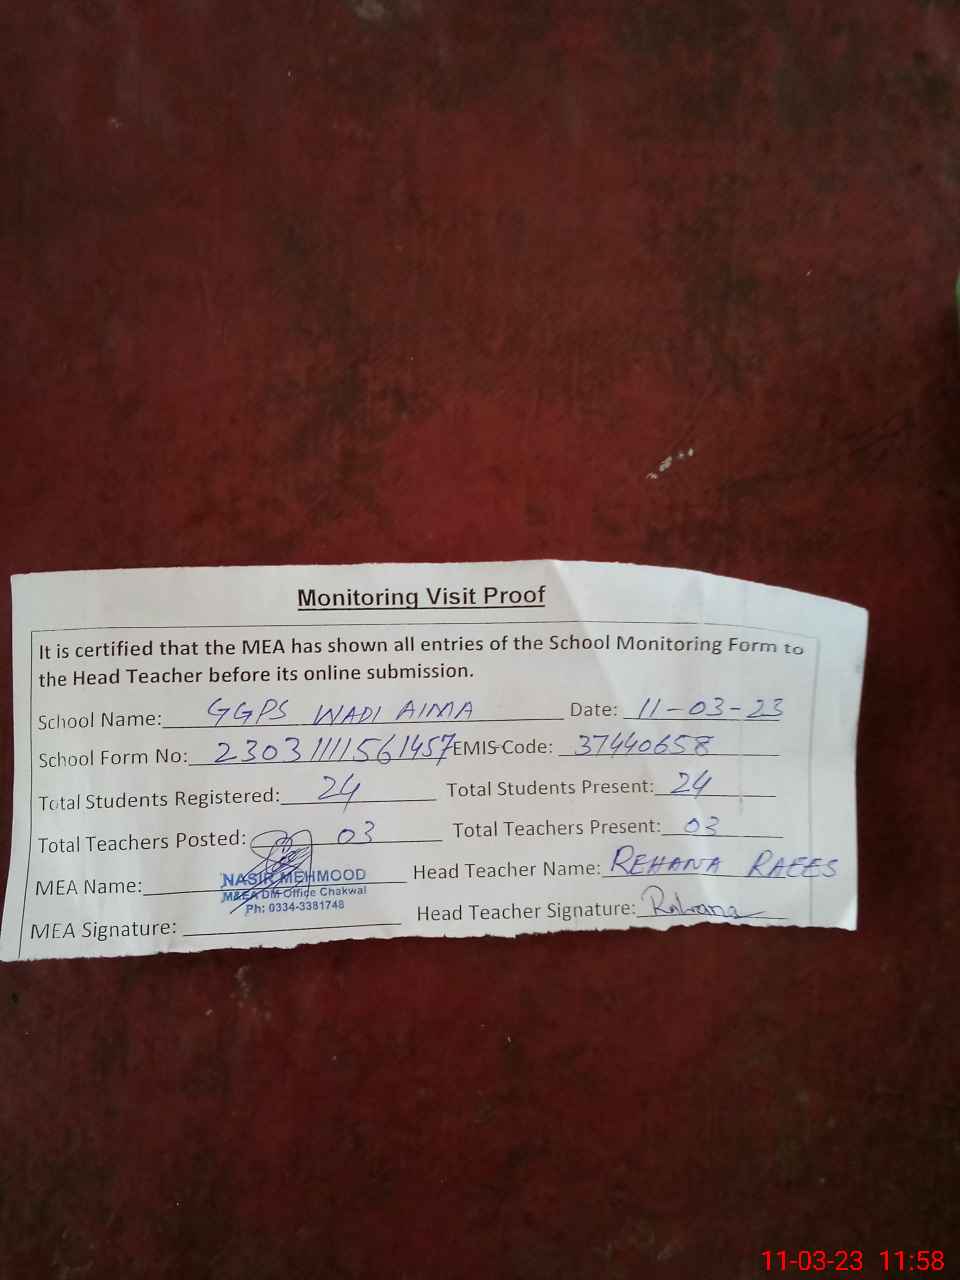 Monitoring Visit Proof
It is certified that the MEA has shown all entries of the School Monitoring Form to
the Head Teacher before its online submission.
School Name: GGPS WADI AIMA Date: 11-03-23
School Form No: 23031111561457 EMIS Code: 37440658
Total Students Registered: 24 Total Students Present: 24
Total Teachers Posted: 03 Total Teachers Present: 03
MEA Name: NASIR MEHMOOD Head Teacher Name: REHANA RAEES
M&EA DM Office Chakwal
Ph: 0334-3381748
MEA Signature: Head Teacher Signature: Rehana
11-03-23 11:58